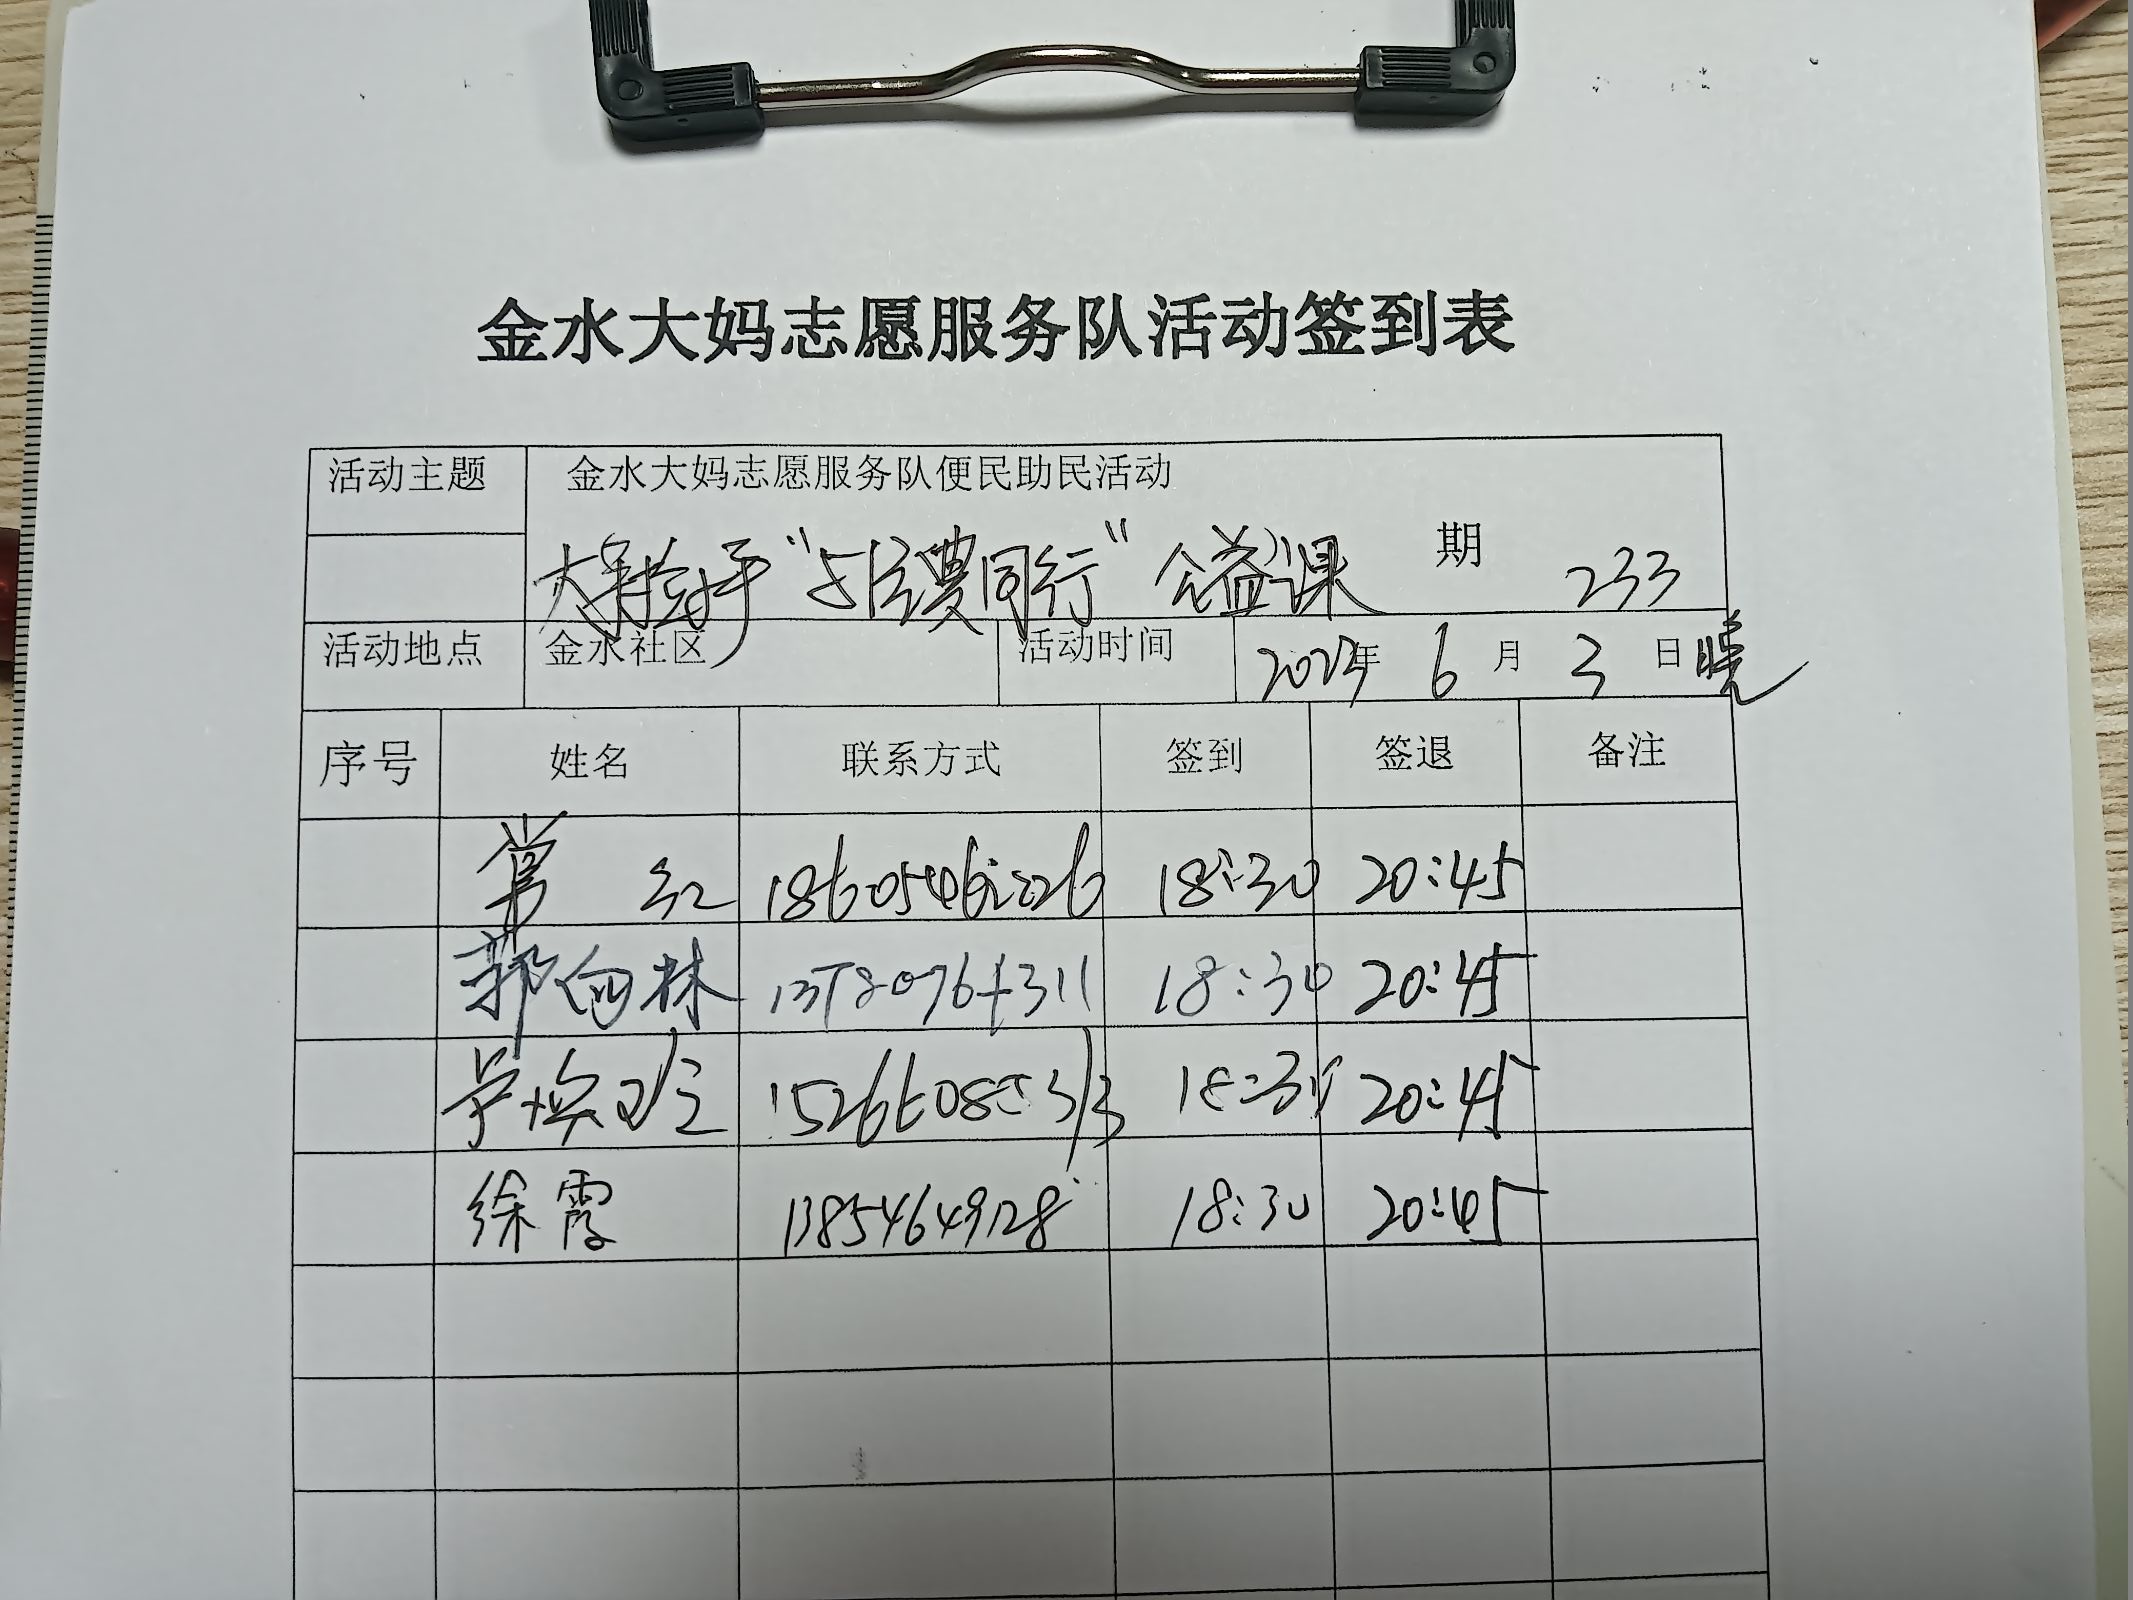 金水大妈志愿服务队活动签到表
活动主题 金水大妈志愿服务队便民助民活动
大手拉小手“与法同行”公益课 期 233
活动地点 金水社区 活动时间 年 6 月 3 日 晚
序号 姓名 联系方式 签到 签退 备注
常红 18:30 20:45
郭向林 18:30 20:45
18:30 20:45
徐霞 13854649128 18:30 20:45